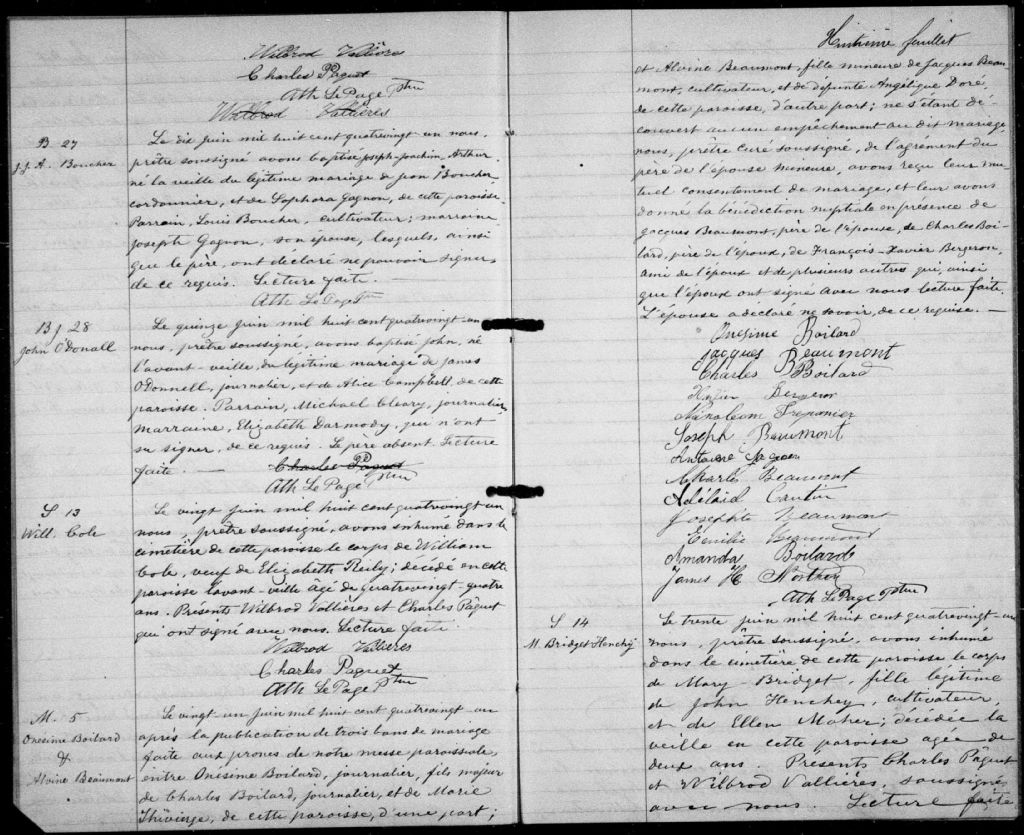 Wilbrod Vallières
Charles Paquet
Ath LePage Ptre
Wilbrod Vallières
B. 27
J. J. A. Boucher
Le dix juin mil huit cent quatrevingt un nous,
prêtre soussigné avons baptisé Joseph-Joachim, Arthur,
né la vieille du légitime mariage de Jean Boucher
cordonnier, et de Sophora Gagnon, de cette paroisse.
Parrain, Louis Boucher, cultivateur; marraine
Joseph Gagnon, son épouse, lesquels, ainsi
que le père, ont déclaré ne pouvoir signer
de ce requis. Lecture faite.
Ath LePage Ptre
B 28
John O'Donall
Le quinze juin mil huit cent quatrevingt-un
nous, prêtre soussigné, avons baptisé John, né
l'avant-veille du légitime mariage de James
O'Donnell, journalier, et de Alice Campbell, de cette
paroisse. Parrain, Michael Cleary, journalier,
Marraine, Elizabeth Darmody, qui n'ont
su signer, de ce requis. Le père absent. Lecture
faite. —
Charles Paquet
Ath LePage Ptre
S 13
Will. Cole
Le vingt juin mil huit cent quatrevingt un
nous, prêtre soussigné, avons inhumé dans le
cimetière de cette paroisse le corps de William
Cole, veuf de Elizabeth; décédé en cette
paroisse l'avant-ville âgé de quatrevingt-quatre
ans. Présents Wilbrod Vallières et Charles Pâquet
qui ont signé avec nous. Lecture faite.
Wilbrod Vallières
Charles Paquet
Ath LePage Ptre
M. 5
Onésime Boilard
&
Alvine Beaumont
Le vingt-un juin mil huit cent quatrevingt-un
après la publication de trois bans de mariage
faite aux prônes de notre messe paroissiale,
entre Onésime Boilard, journalier, fils majeur
de Charles Boilard, journalier, et de Marie
Thivierge, de cette paroisse, d'une part;
Huitième feuillet
et Alvine Beaumont, fille mineure de Jacques Beau
mont, cultivateur, et de défunte Angélique Doré,
de cette paroisse, d'autre part; ne s'étant dé-
couvert aucun empêchement au dit mariage,
nous, prêtre curé soussigné, de l'agrément du
père de l'épouse mineure, avons reçu leur mu-
tuel consentement de mariage, et leur avons
donné la bénédiction nuptiale en présence de
Jacques Beaumont, père de l'épouse, de Charles Boi-
lard, père de l'époux, de François-Xavier Bergeron,
ami de l'époux et de plusieurs autres qui, ainsi
que l'époux ont signé avec nous lecture faite.
L'épouse a déclaré ne savoir, de ce requise. —
Onésime Boilard
Jacques Beaumont
Charles Boilard
Bergeron
Napoléon Trepanier
Joseph Beaumont
Antoine
Charles Beaumont
Adélaid Cantin
Josephte Beaumont
Emilie Beaumond
Amanda Boilard
James H
Ath LePage Ptre
S 14
M. Bridget Henchy
Le trente juin mil huit cent quatrevingt-un
nous, prêtre soussigné, avons inhumé
dans le cimetière de cette paroisse le corps
de Mary-Bridget, fille légitime
de John Henchey, cultivateur,
et de Ellen Maher; décédée la
veille en cette paroisse agée de
deux ans. Présents Charles Pâquet
et Wilbrod Vallières, soussignés
avec nous. Lecture faite